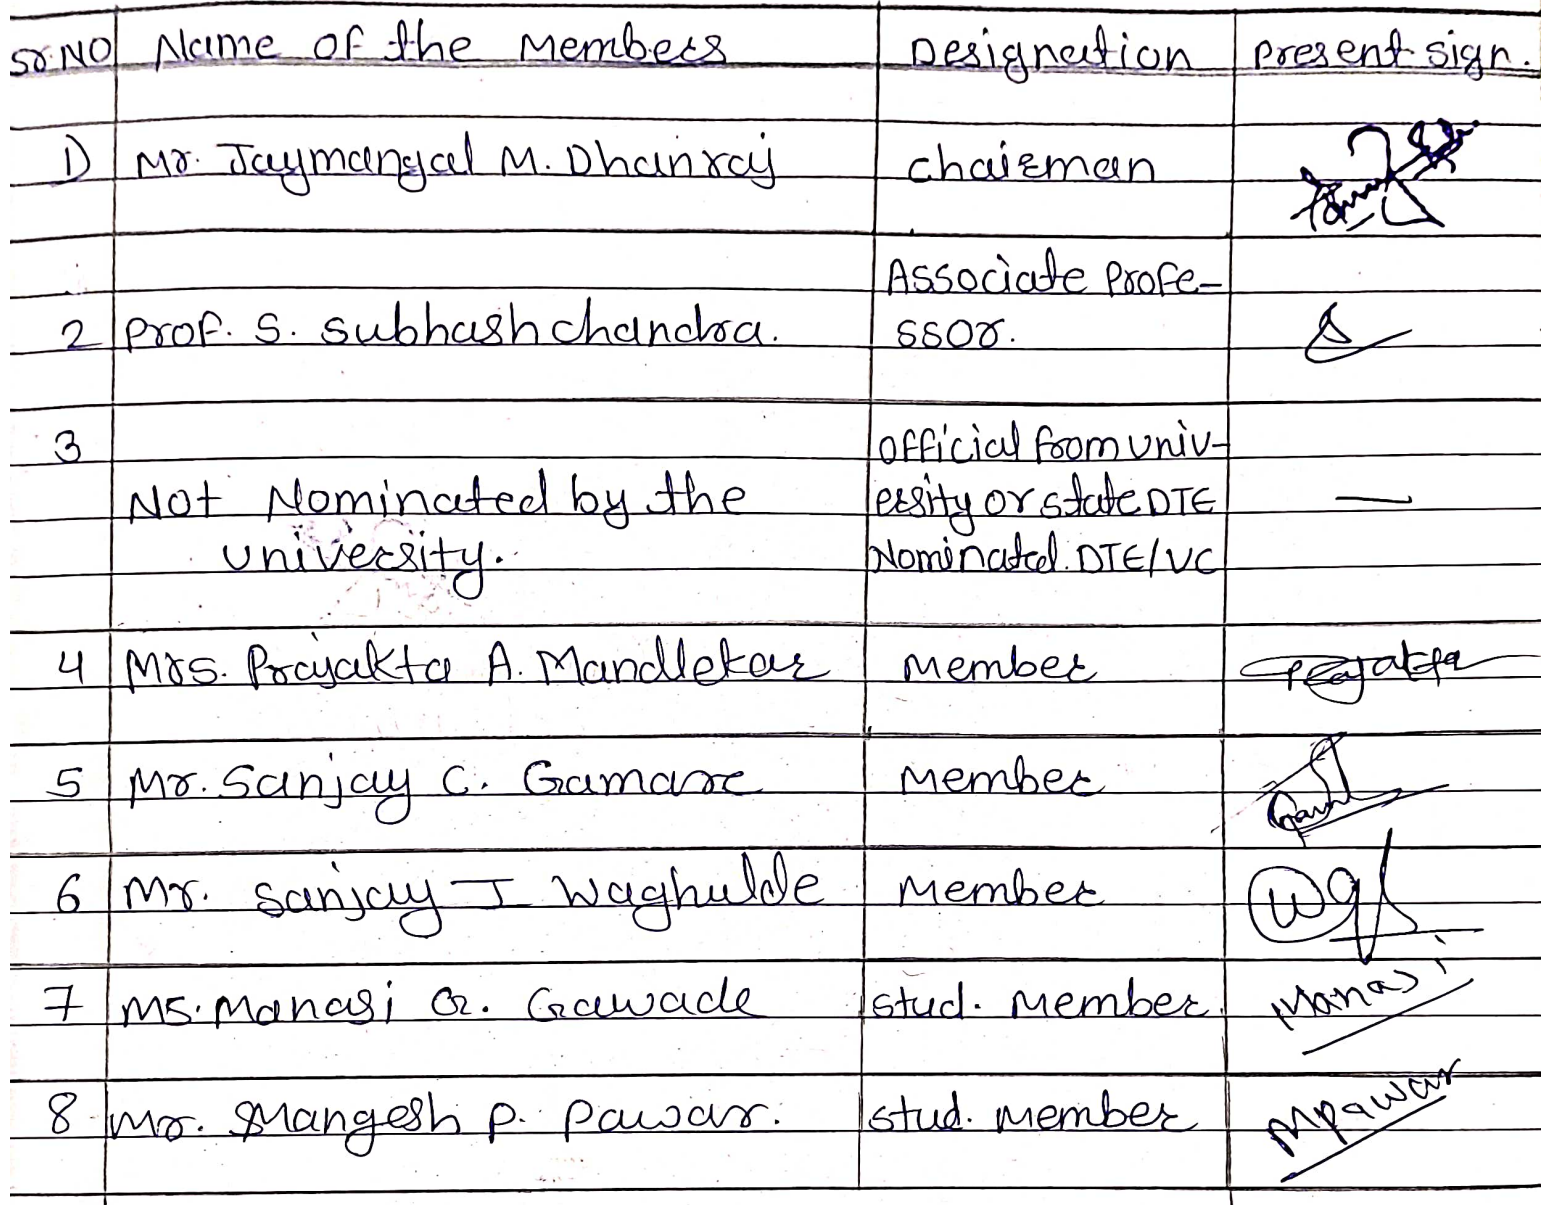 Sr.NO Name of the Members Designation Present sign.
1) Mr. Jaymangal M. Dhanraj chairman
Associate Profe-
2 Prof. S. Subhash chandra. ssor.
3 official from univ-
Not Nominated by the ersity or state DTE —
university. Nominated. DTE/VC
4 Mrs. Prajakta A. Mandlekar Member Prajakta
5 Mr. Sanjay C. Gamare Member
6 Mr. Sanjay J Waghulde Member
7 Ms. Manasi G. Gawade stud. Member. Manasi
8 Mr. Mangesh P. Pawar. stud. Member MPawar